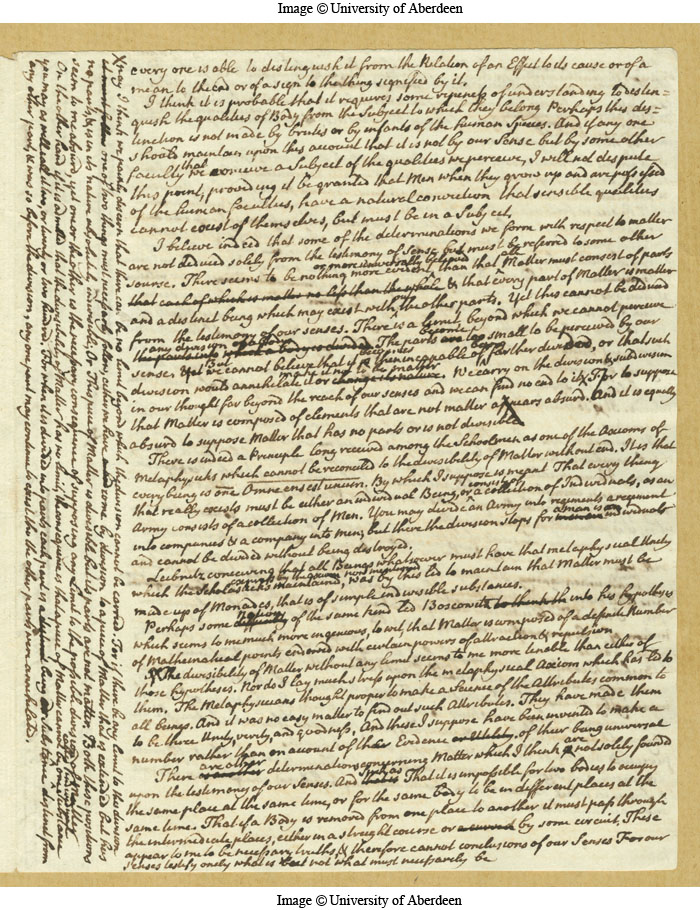 Image © University of Aberdeen
every one is able to distinguish it from the Relation of an Effect to its cause or of a
mean to the end or of a sign to the thing signified by it.
I think it is probable that it requires some ripeness of understanding to destin=
quish the qualities of Body from the Subject to which they belong Perhaps this des=
tinction is not made by brutes or by infants of the human Species. And if any one
should maintain upon this account that it is not by our Sense but by some other
faculty that we conceive a Subject of the qualities we perceive, I will not dispute
this point, providing it be granted that Men when they grow up and are possessed
of the human faculties, have a natural conviction that sensible qualities
cannot exist of themselves, but must be in a Subject,
I believe indeed that some of the determinations we form with respect to matter
are not deduced solely from the testimony of Sense but must be referred to some other
sourse. There seems to be nothing more evident than that all Matter must consist of parts
or more universally believed
that each of which is matter no less than the whole & that every part of Matter is matter
and a distinct being which may exist with the other parts. Yet this cannot be deduced
from the testimony of our senses. There is a limit beyond which we cannot perceive
any division of a body. The parts become too small to be perceived by our
sense, But we cannot believe that it becomes incapable of being farther divided, or that such
division would annihelate it or make it not to be matter. We carry on the division & subdivision
in our thought far beyond the reach of our senses and we can find no end to it X For to suppose
that Matter is composed of elements that are not matter appears absurd. And it is equally
absurd to suppose Matter that has no parts or is not divisible
There is indeed a Principle long received among the Schoolmen as one of the Axioms of
Metaphysicks which cannot be reconciled to the divisibility of Matter without end. It is that
every being is one Omne ens est unum. By which I suppose is meant That every thing
that really exists must be either an individual Being, or a collection of Individuals, as an
Army consists of a collection of Men. You may divide an Army into regiments a regiment
into companies & a company into men; but there the division stops for a man is an individual
and cannot be divided without being destroyed;
Leibnitz conceiving that all Beings whatsoever must have that metaphysical Unity
which the Scholasticks maintained, was by this led to maintain that Matter must be
made up of Monades, that is of simple indivisible substances.
Perhaps some of the same kind led Boscowitz into his hypothesis
which seems to me much more ingenious, to wit, that Matter is composed of a definite Number
of Mathematical points endowed with certain powers of attraction & repulsion
The divisibility of Matter without any limit seems to me more tenable than either of
those Hypotheses. Nor do I lay much stress upon the metaphysical Axiom which has led to
them. The Metaphysicians thought proper to make a science of the Attributes common to
all beings. And it was no easy matter to find out such Attributes. They have made them
to be three Unity, verity, and goodness, And these I suppose have been invented to make a
number rather than on account of their Evidence or Utility. of their being universal
There are other determinations concerning Matter which I think are not solely founded
upon the testimony of our Senses. And such as That it is impossible for two bodies to occupy
the same place at the same time, or for the same Body to be in different places at the
same time. That if a Body is removed from one place to another it must pass through
the intermediate places, either in a streight course or by some circuit, These
appear to me to be necessary truths, & therefore cannot conclusions of our Senses For our
senses testify onely what is not what must necessarily be
X may I think we partly discern that there can be no limit beyond which the division cannot be carried. For if there be any limit to this division
one of two things must necessarily follow, either we have come by division to a piece of Matter that is extended but has
no parts, & is in its nature absolutely indivisible, Or This piece of Matter is divisible but its parts are not matter. Both these positions
seem to me absurd, yet one or the other is the necessary consequence of supposing any Limit to the possible division of Matter
On the other hand if it is admitted that the divisibility of Matter has no limit, the consequence is that a piece of Matter cannot be one substance
you may as well call it two, or twenty or two hundred. For when it is divided into parts each part is a being distinct from
any other part, & was so before the division; any one part may continue to exist tho the other parts were annihilated.
Image © University of Aberdeen